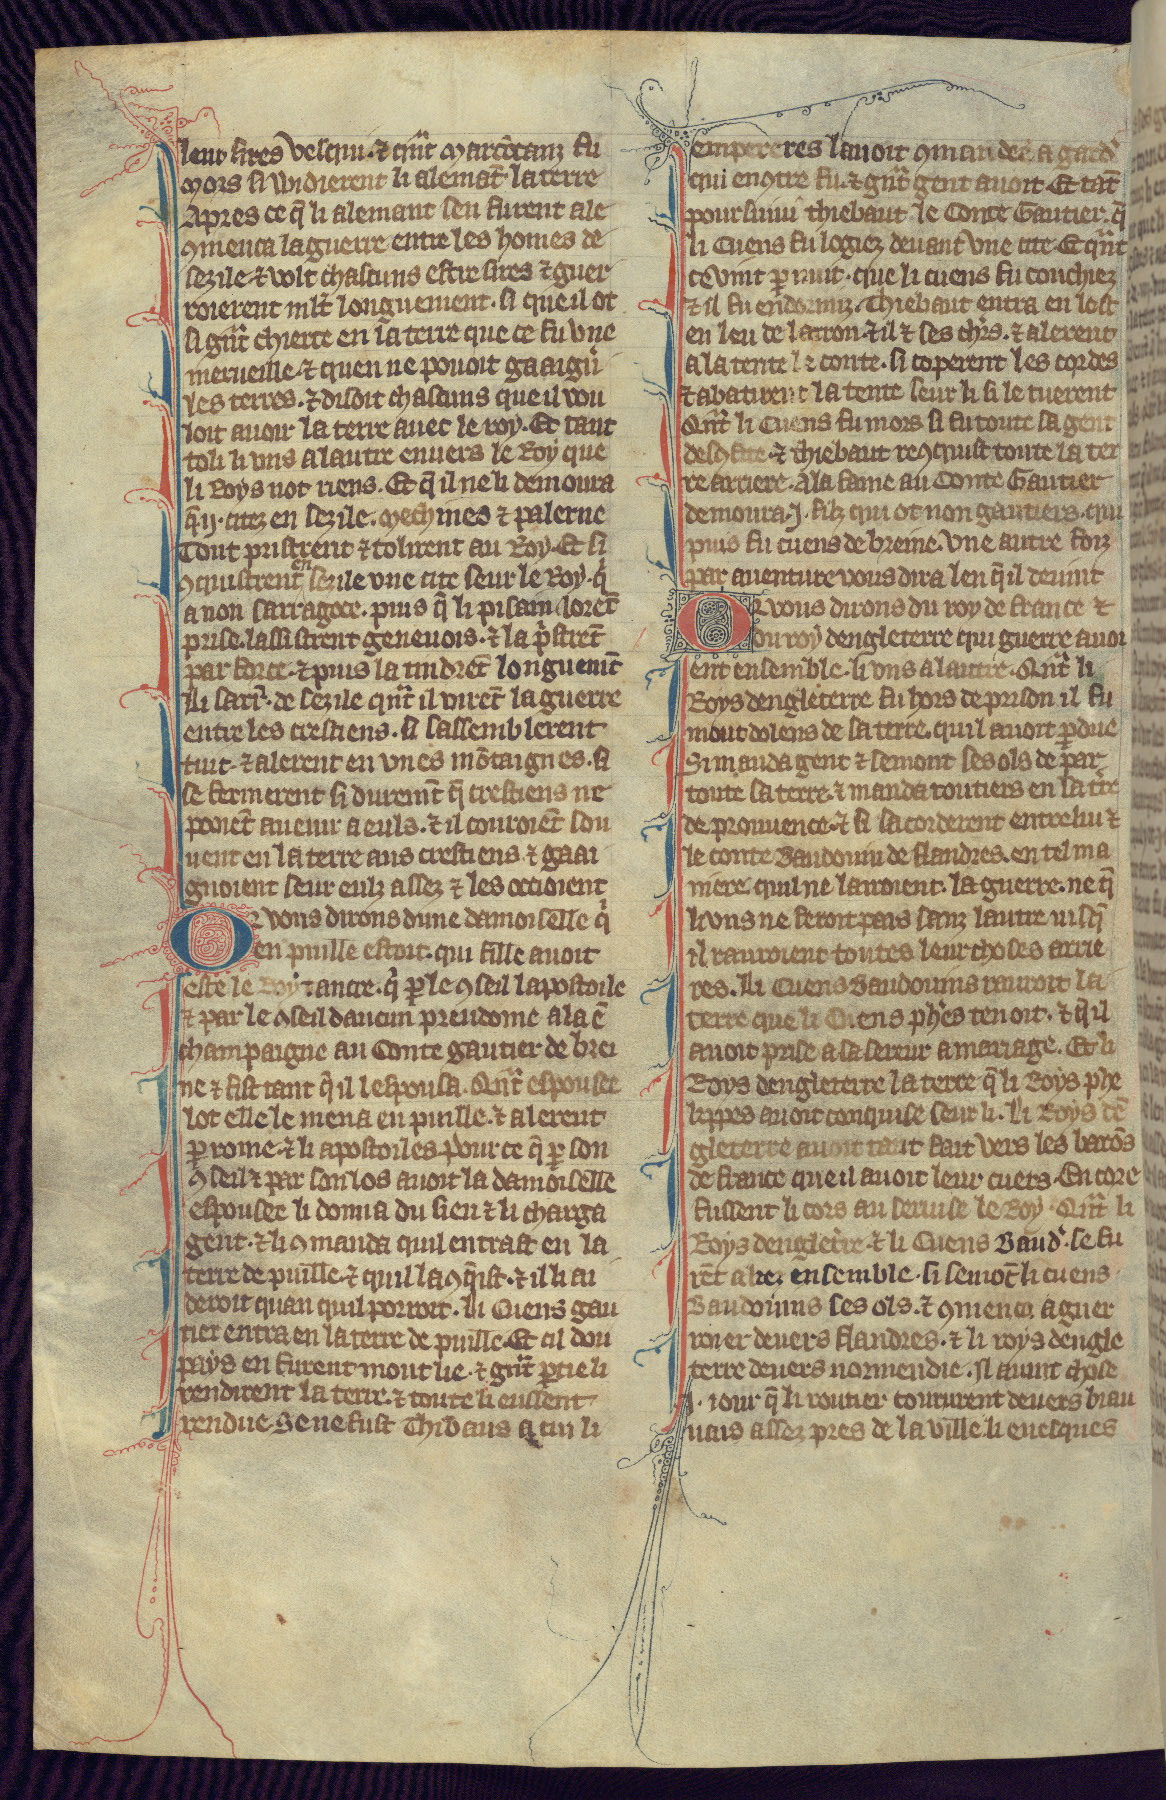 leur sires vesqui. ⁊ qñt marcôtanz fu
mors si widierent li alemāt la terre
Apres ce q̄ li alemant sen furent ale
ꝯmenca la guerre entre les homes de
sezile ⁊ volt chascuns estre sires ⁊ guer
roierent mlt̄ longuement. si que il ot
si gñt chierte en la terre que ce fu vne
merueille ⁊ quen ne pouoit gaaigñ
les terres. ⁊ disoit chascuns que il vou
loit auoir la terre auec le roy. Et tant
toli li vns a lautre enuers le Roy que
li Roys not riens. Et q̄ il ne li demoura
q̄ ij. citez en sezile. meschines ⁊ palerne
Tout pristrent ⁊ tolirent au Roy. Et si
ꝯquistrent en sezile vne cite seur le Roy. q̇
a non sarragoce. puis q̄ li pisain lorēt
prise. lassistrent geneuois. ⁊ la ṗstrēt
par force. ⁊ puis la tindrēt longuemt̄
Li sarr̄. de sezile qñt il virēt la guerre
entre les crestiens. si sassemblerent
tuit. ⁊ alerent en vnes mōtaignes. si
se fermerent si duremt̄ q̄ crestiens ne
pouēt auenir a euls. ⁊ il couroiēt sou
uent en la terre aus crestiens ⁊ gaai
gnoient seur eulz assez ⁊ les occioient
Or vous dirons dune damoiselle q̇
en puille estoit. qui fille auoit
este le Roy tancre. q̇ ꝑ le ꝯseil lapostoile
⁊ par le ꝯseil daucun preudome ala ē
champaigne au Conte gautier de brei
ne ⁊ fist tant q̄ il lespousa. Qñt espousee
lot elle le mena en puille. ⁊ alerent
ꝑ rome. ⁊ li apostoiles pour ce q̄ ꝑ son
ꝯseil ⁊ par son los auoit la damoiselle
espousee li donna du sien ⁊ li charga
gent. ⁊ li ꝯmanda quil entrast en la
terre de puille. ⁊ quil la ꝯq̇st. ⁊ il li ai
deroit quan quil porroit. Li Cuens gau
tier entra en la terre de puille. Et cil dou
pays en furent mout lie. ⁊ gñt ꝑtie li
rendirent la terre. ⁊ toute li eussent
rendue. Se ne fust Thibaus a cui li
empereres lauoit ꝯmandee a gard̓
qui encōtre fu. ⁊ gñt gent auoit. Et tāt
poursuiui thiebaut le Conte Gautier. q̄
li Cuens fu logiez deuant vne cite. Et qñt
ce vint ꝑ nuit. que li cuens fu couchiez
⁊ il fu endormiz. Thiebaut entra en lost
en leu de larron. ⁊ il ⁊ ses chr̄s. ⁊ alerent
a la tente le conte. si coperent les cordes
⁊ abatirent la tente seur li si le tuerent
Qñt li Cuens fu mors si fu toute sa gent
desꝯfite. ⁊ thiebaut reꝯquist toute la ter
re arriere. A la fame au Conte Gautier
demoura .j. filz qui ot non gautiers. qui
puis fu cuens de breine. Vne autre foiz
par auenture vous dira len q̄ il deuint
Or vous dirons du roy de france ⁊
dou roy dengleterre qui guerre auoi
ent ensemble. li vns a lautre. Qñt li
Roys dengleterre fu hors de prison il fu
mout dolens de sa terre. quil auoit ꝑdue
Si manda gent ⁊ semont ses ols de par
toute sa terre. ⁊ manda routiers en la tr̄e
de prouuence. ⁊ si sacorderent entre lui ⁊
le conte Baudouin de flandres. en tel ma
niere quil ne lairoient. la guerre. ne q̄
li vns ne feroit pais sanz lautre iusq̄
il rauroient toutes leur choses arrie
res. Li Cuens Baudouins rauroit la
terre que li Cuens ph̄es tenoit. ⁊ q̄ il
auoit prise a sa sereur a mariage. Et li
Roys dengleterre la terre q̄ li Roys phe
lippes auoit conquise seur li. Li Roys dē
gleterre auoit tant fait vers les barōs
de france que il auoit leur cuers. Encore
fussent li cors au seruise le Roy. Qñt li
Roys dengleterre. ⁊ li Cuens Baud̓. se fu
rēt aliez ensemble. si semōt li cuens
Baudouins ses ols. ⁊ ꝯmenca a guer
roier deuers flandres. ⁊ li roys dengle
terre deuers normendie. Il auint chose
.j. iour q̄ li routier coururent deuers biau
uais assez pres de la ville. li euesques